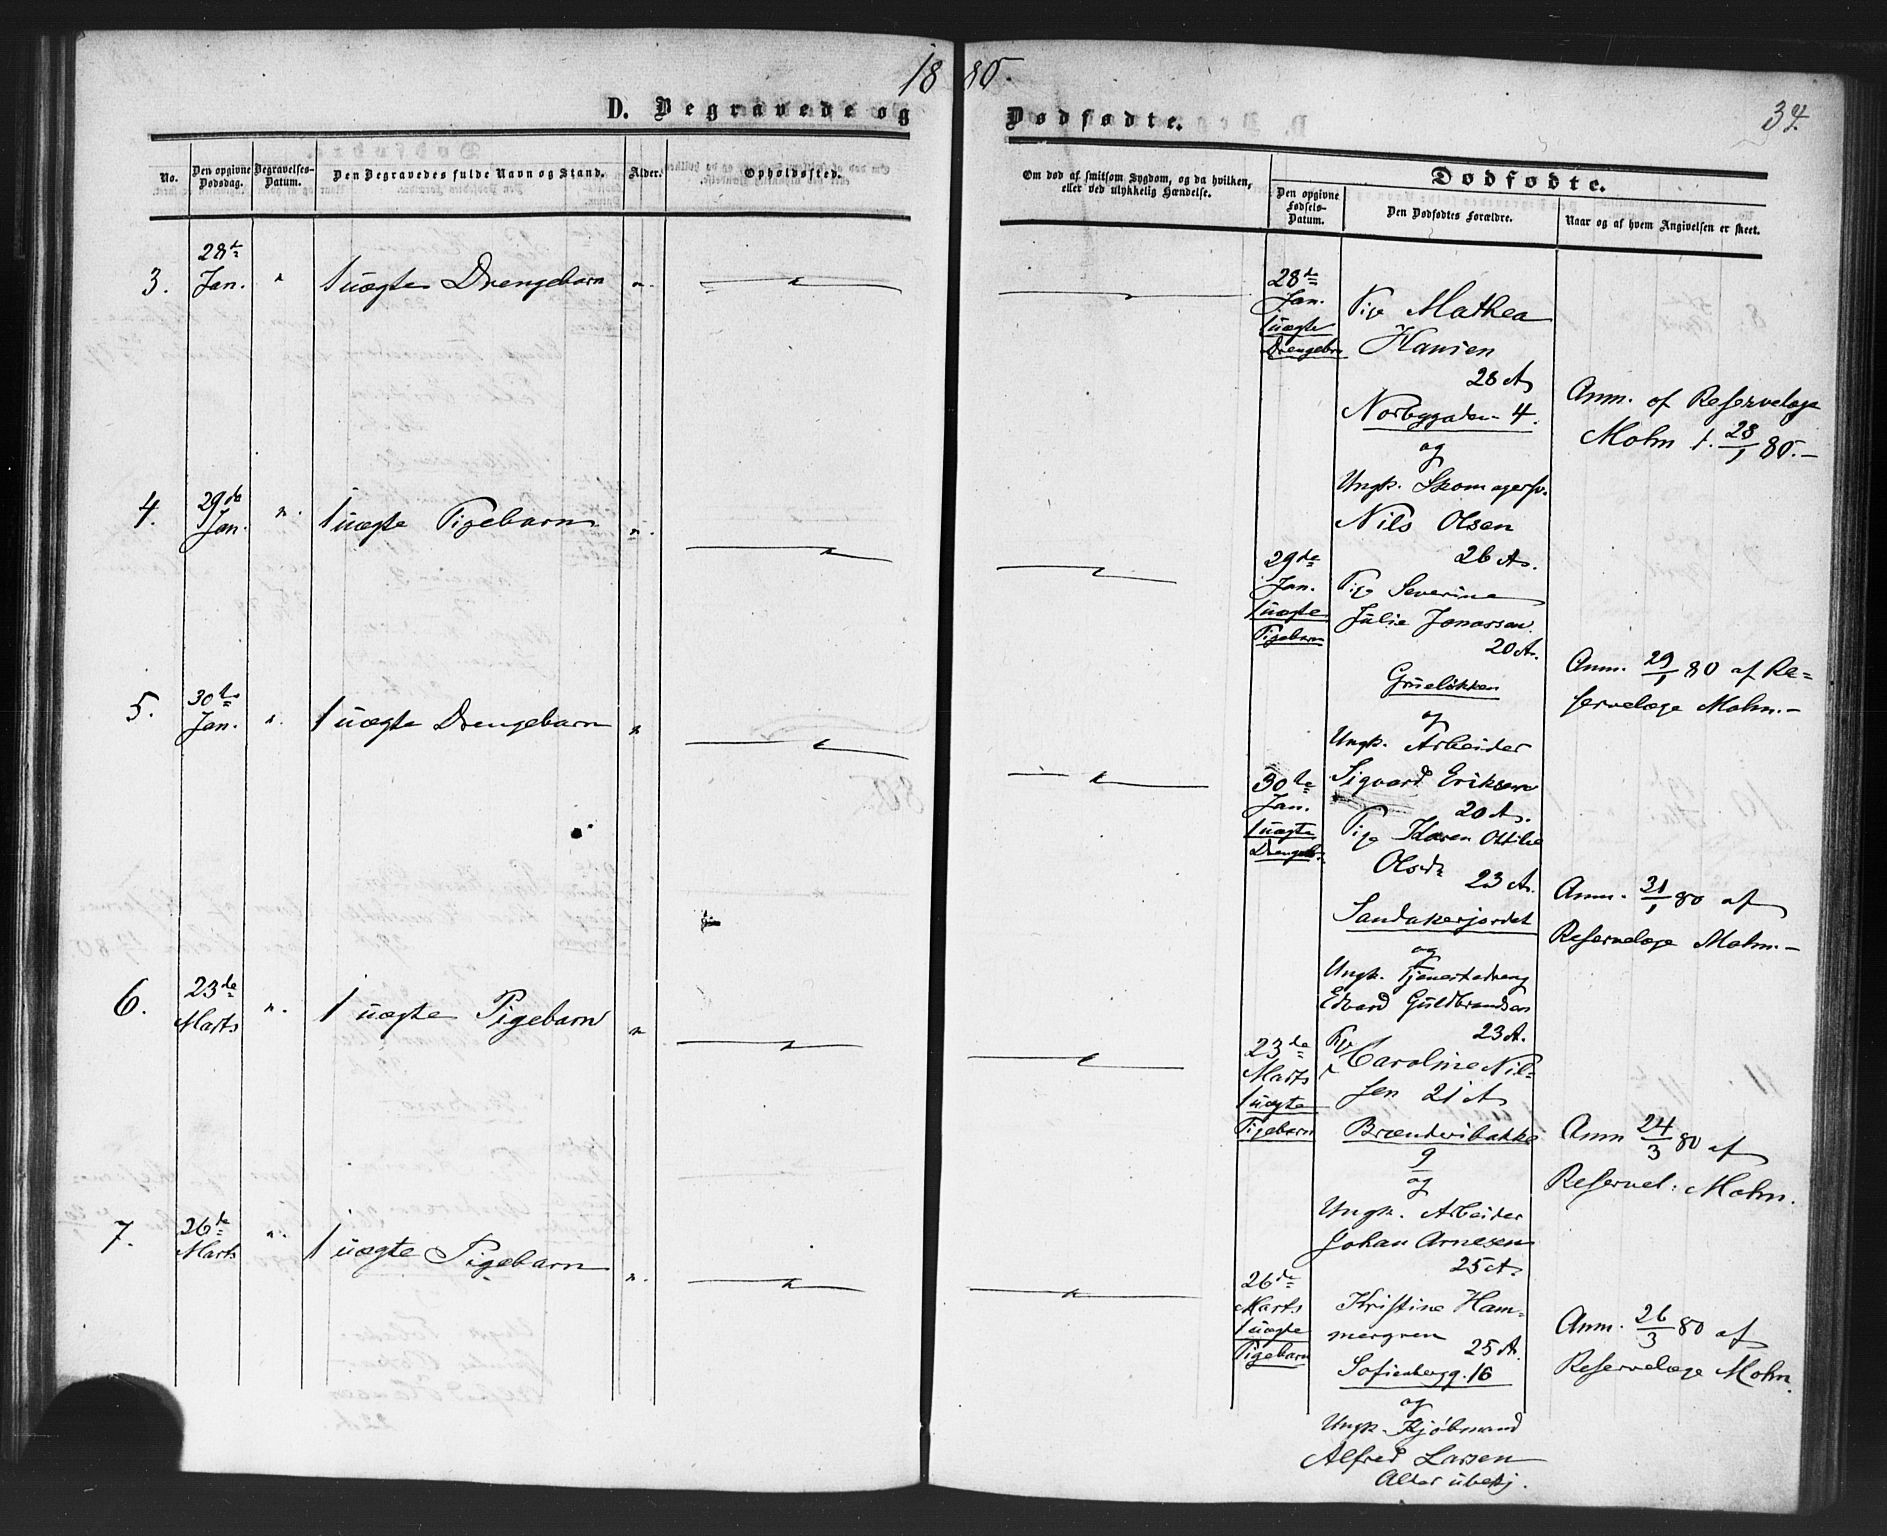 1880.
34.
D. Begravede og Dødfødte.
No.
Den opgivne Dødsdag.
Begravelses-Datum.
Den Begravedes fulde Navn og Stand.
Alder.
Opholdssted.
Om død af smitsom Sygdom, og da hvilken, eller ved ulykkelig Hændelse.
Dødfødte.
Den opgivne Fødsels-Datum.
Den Dødfødtes Forældre.
Naar og af hvem Angivelsen er skeet.
3.
28de
Jan.
"
1 uægte Drengebarn
"
28de
Jan.
1 uægte
Drengebn
Pige Mathea
Hansen
28 A
Norbygaden 4.
og
Ungk. Skomagersv.
Nils Olsen
26 A.
Anm. af Reservelæge
Mohn d. 28/1 80.-
4.
29de
Jan.
"
1 uægte Pigebarn
"
29de
Jan.
1 uægte
Pigebarn
Pige Severine
Julie Jonassen
20 A.
Grueløkken
og
Ungk. Arbeider
Sigvard Eriksen
20 A.
Anm. 29/1 80 af Re=
servelæge Mohn.-
5.
30te
Jan.
"
1 uægte Drengebarn
"
30te
Jan.
1 uægte
Drengeb.
Pige Karen Ottilie
Olsdr
23 A.
Sandakerjordet
og
Ungk. Tjenestedreng
Edvard Guldbrandsen
23 A.
Anm. 31/1 80 af
Reservelæge Mohn.-
6.
23de
Marts
"
1 uægte Pigebarn
"
23de
Marts
1 uægte
Pigebarn
Pige Caroline Nil=
sen 21 A
Brænderibakke
9
og
Ungk. Arbeider
Johan Arnesen
25 A.
Anm 24/3 80 af
Reservel: Mohn.
7.
26de
Marts
"
1 uægte Pigebarn
"
26de
Marts
1 uægte
Pigebarn
Kristine Ham=
mergren
25 A.
Sofienbergg. 16
og
Ungk. Kjøbmand
Alfred Larsen
Alder ubekj.
Anm. 26/3 80 af
Reservelæge Mohn.